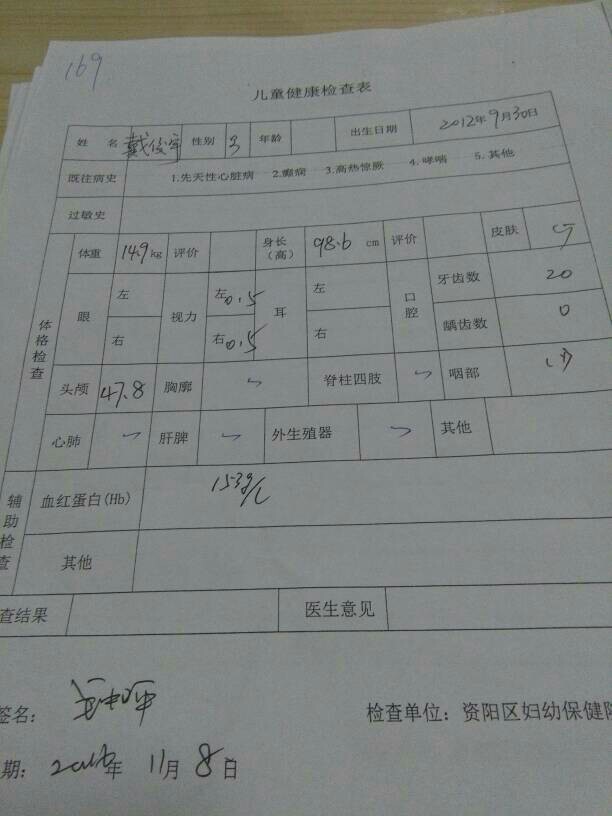 169
儿童健康检查表
姓 名 戴俊宇 性别 3 年龄 出生日期 2012年9月30日
既往病史 1.先天性心脏病 2.癫痫 3.高热惊厥 4.哮喘 5.其他
过敏史
体格检查 体重 14.9kg 评价 身长(高) 98.6 cm 评价 皮肤
眼 左 视力 左0.5 耳 左 口腔 牙齿数 20
右 右0.5 右 龋齿数 0
头颅 47.8 胸廓 脊柱四肢 咽部
心肺 肝脾 外生殖器 其他
辅助检查 血红蛋白(Hb) 153g/L
其他
查结果 医生意见
签名: 检查单位: 资阳区妇幼保健院
期: 2016年 11月 8日